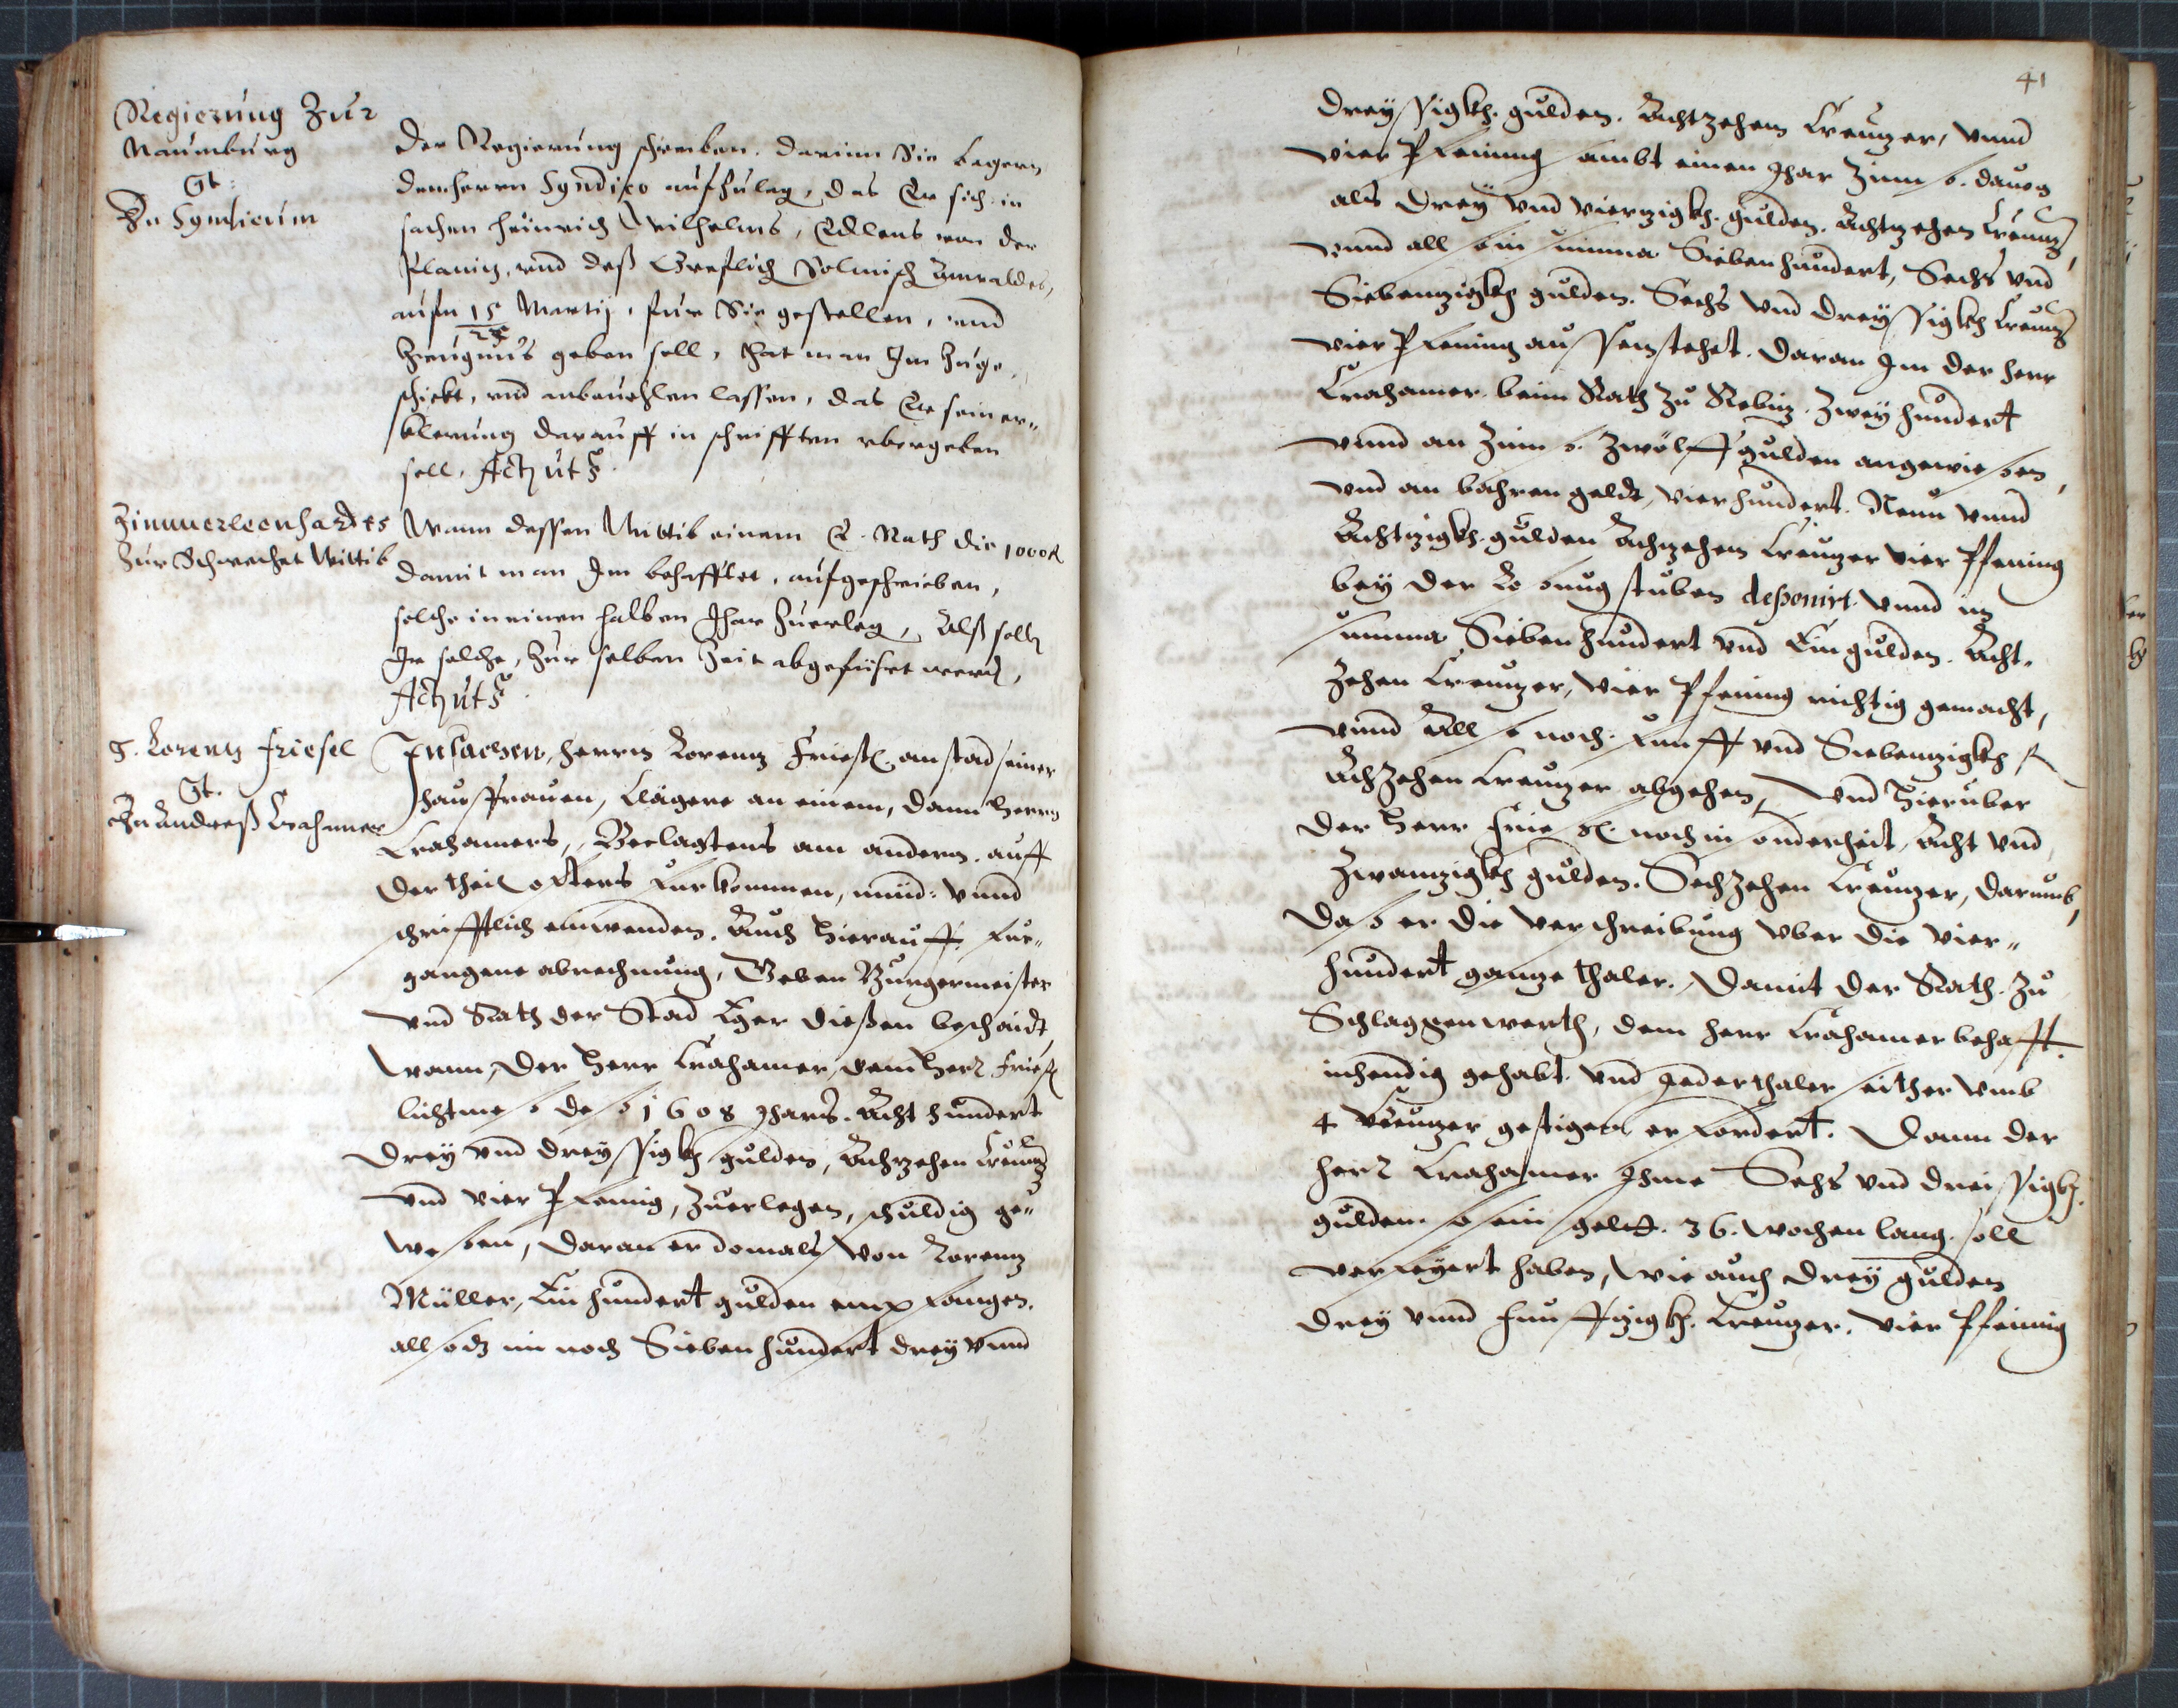 Regierung Zur
Naumburg
Ct:
Hn Syndicum
Der Regierung schreiben. darinn Sie begern
dem herrn Syndico aufzulag, das Er sich in
sachen Heinrich Wilhelms, Edlens von der
Planitz, vnd deß Greflich Solmisch Anwaldes,
aufn 15 Martij, fur Sie gestellen, vnd
25
Zeugnus geben soll, hat man Im Zuge„
schickt, vnd anbeuehlen lassen, das Er sein er„
klerung darauff in schrifften vbergeben
soll. Actz uts.
Zimmerleonhardts
Zur Schwechat Wittib
Wann dessen Wittib einem E. Rath die 1000 fl
damit man Im behafftet, aufgeschrieben,
solche in einen halben Jhar Zuerleg, Alß solln
Ir solche, Zur selben Zeit abgefürt werd,
Actz uts.
H. Lorentz Friesel
Ct.
Hn Andreß Crahamer
In sachen, herrn Lorentz Friesl. anstad seiner
haußfrauen, Clägere an einem, dann herrn
Crahamers, Beclagtens am andern. auff
der theil offters furkommen, münd: vnnd
schrifftlich einwenden. Auch hierauff fur„
gangene abrechnung, Geben Burgermeister
vnd Rath der Stad Eger diesen beschaidt,
Wann, der Herr Crahamer, dem Herr Friesl
lichtmes des 1608 Jhars. Acht hundert
drey vnd dreyssigkh gulden, Achtzehen Creutz
vnd vier Pfening, zuerlegen, schuldig ge„
wesen, daran er domals von Lorentz
Müller, Ein hundert gulden empfangen.
also dz im noch Siebenhundert drey vnnd
41
dreyssigkh. gulden. Achtzehen Creutzer, vnnd
vier Pfening sambt einen Jhar Zinns. dauon
als drey vnd viertzigkh. gulden. Achtzehen Creutz,
vnnd also in summa Siebenhundert, Sechs vnd
Siebentzigkh gulden. Sechs vnd dreyssigkh Creutz
vier Pfening aussenstehet. daran Im der herr
Crahamer. beim Rath zu Rebitz. Zwey hundert
vnnd an Zinns. Zwölff gulden angewiesen,
vnd an bahren geldt, vierhundert. Neun vnnd
Achtzigkh. gulden Achzehen Creutzer vier Pfening
bey der Losung stuben deponirt. vnnd in
summa Siebenhundert vnd Ein gulden. Acht„
zehen Creutzer, vier Pfening richtig gemacht,
vnnd Also noch. funff vnd Siebentzigkh fl
Achzehen Creutzer abgehen, vnd hieruber
der Herr Friesl. noch in sonderheit, Acht vnd
Zwantzigkh gulden. Sechzehen Creutzer, darumb,
das er die verschreibung vber die vier„
hundert gantze thaler. damit der Rath. zu
Schlaggenwerth, dem herr Crahamer behafft.
inhendig gehabt. vnd jeder thaler seither vmb
4 Creutzer gestigen erfordert. dann der
herr Crahamer Ihme Sechs vnd dreissigkh.
gulden. so sein gelt. 36. wochen lang. soll
verfeyert haben, wie auch drey gulden
drey vnnd funfftzigkh. Creutzer. vier Pfening